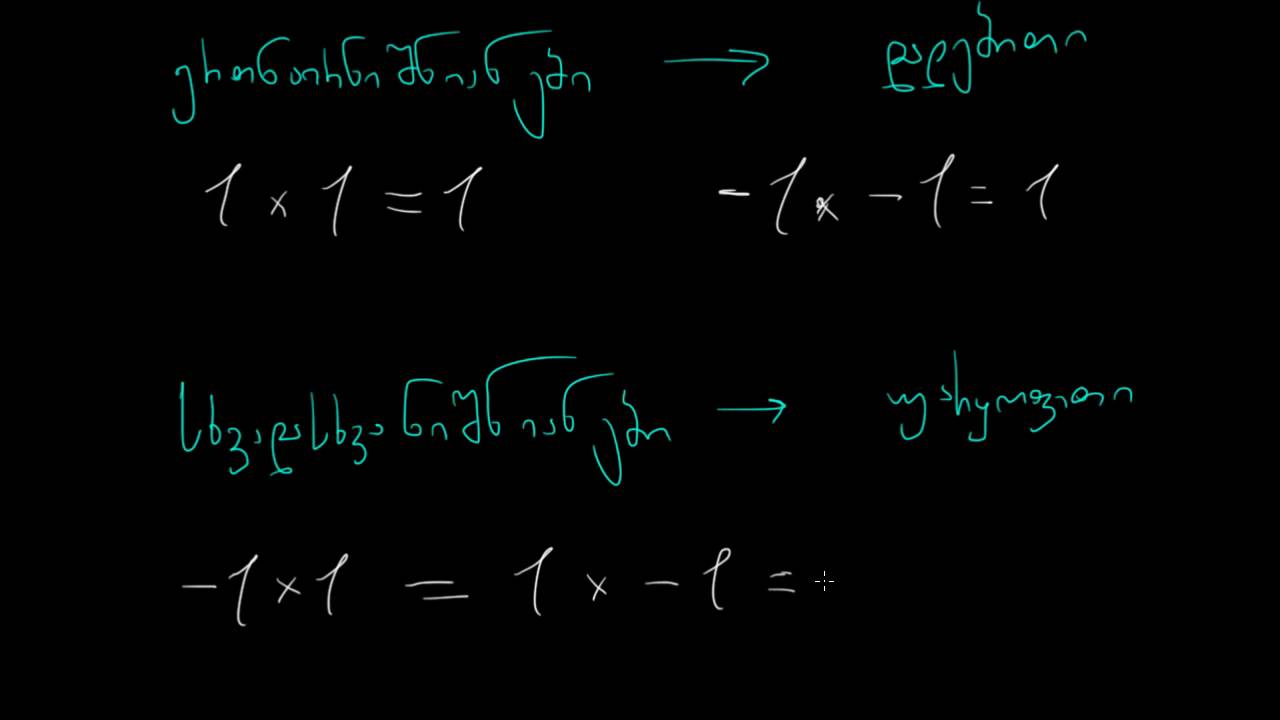 ერთნაირნიშნიანები → დადებითი
1 × 1 = 1 -1 × -1 = 1
სხვადასხვანიშნიანები → უარყოფითი
-1 × 1 = 1 × -1 =